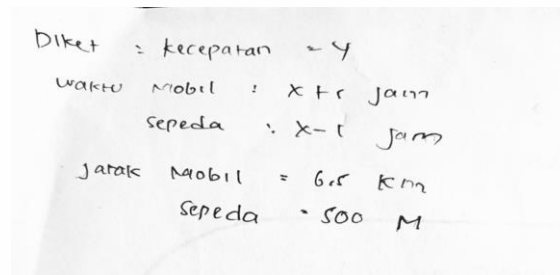 Diket : kecepatan = y
waktu Mobil : x + 1 jam
sepeda : x - 1 jam
Jarak Mobil = 6,5 Km
Sepeda = 500 M